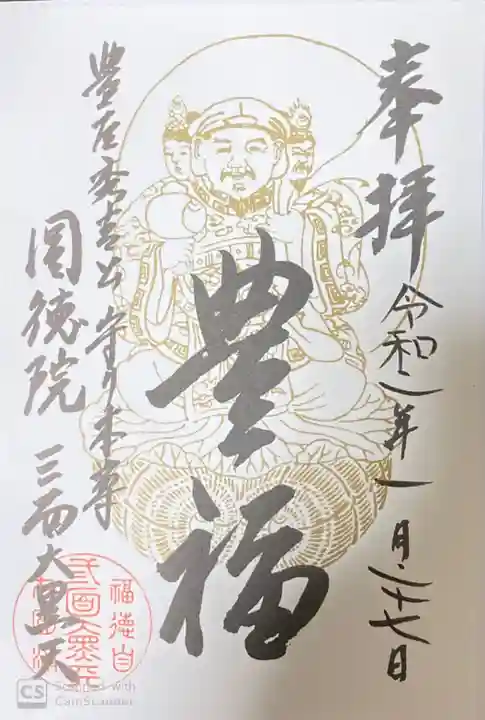 奉拝
令和二年一月二十七日
豊福
豊臣秀吉公守り本尊
圓徳院 三面大黒天
福徳自
三面大黒天
CS Scanned with
CamScanner